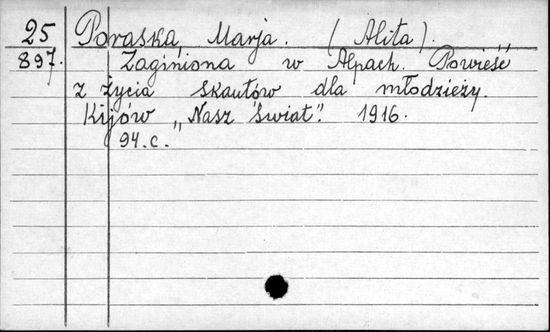 25 Poraska, Marja. (Alita).
897. Zaginiona w Alpach. Powieść
z życia skautów dla młodzieży.
Kijów „Nasz świat". 1916.
94.c.